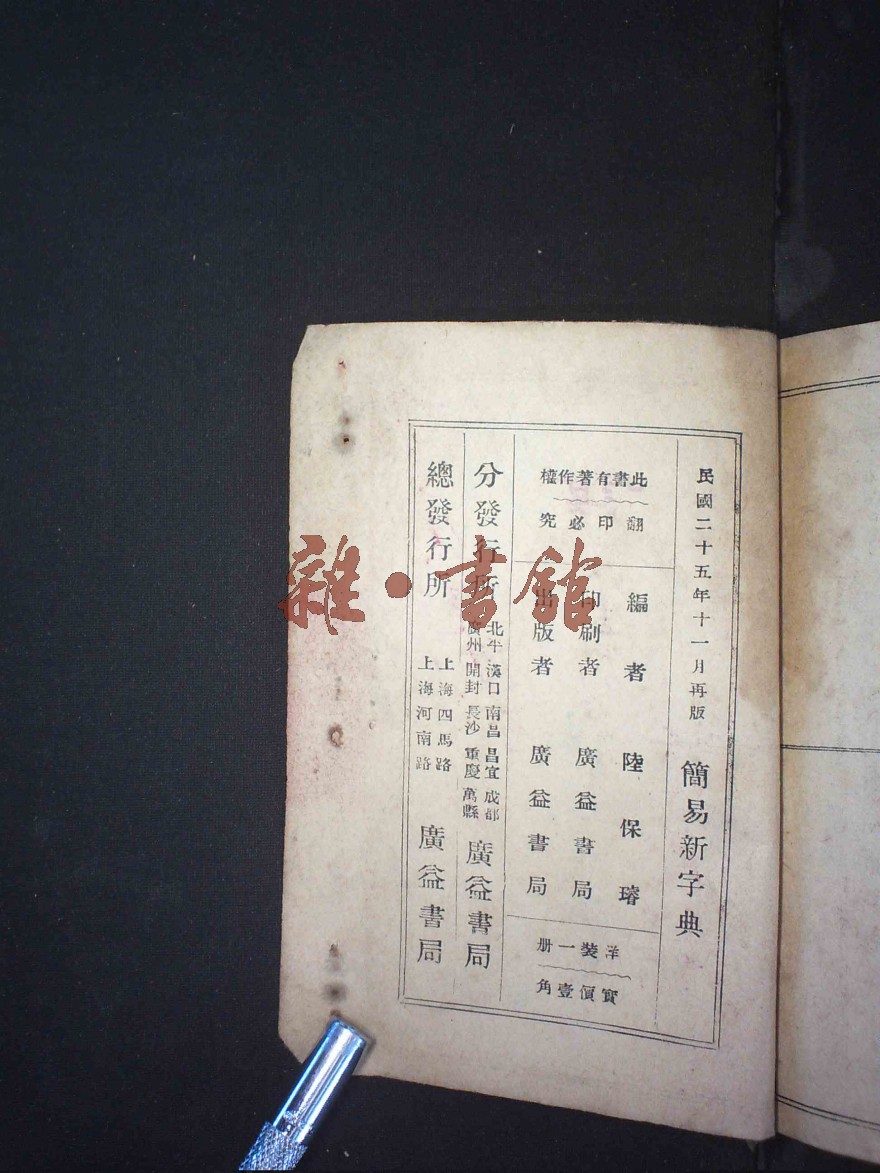 民國二十五年十一月再版
簡易新字典
此書有著作權
翻印必究
編者 陸保璿
印刷者 廣益書局
出版者 廣益書局
洋裝一册
實價壹角
分發行所
北平 漢口 南昌 昌宜 成都
廣州 開封 長沙 重慶 萬縣
廣益書局
總發行所
上海四馬路
上海河南路
廣益書局
雜·書館